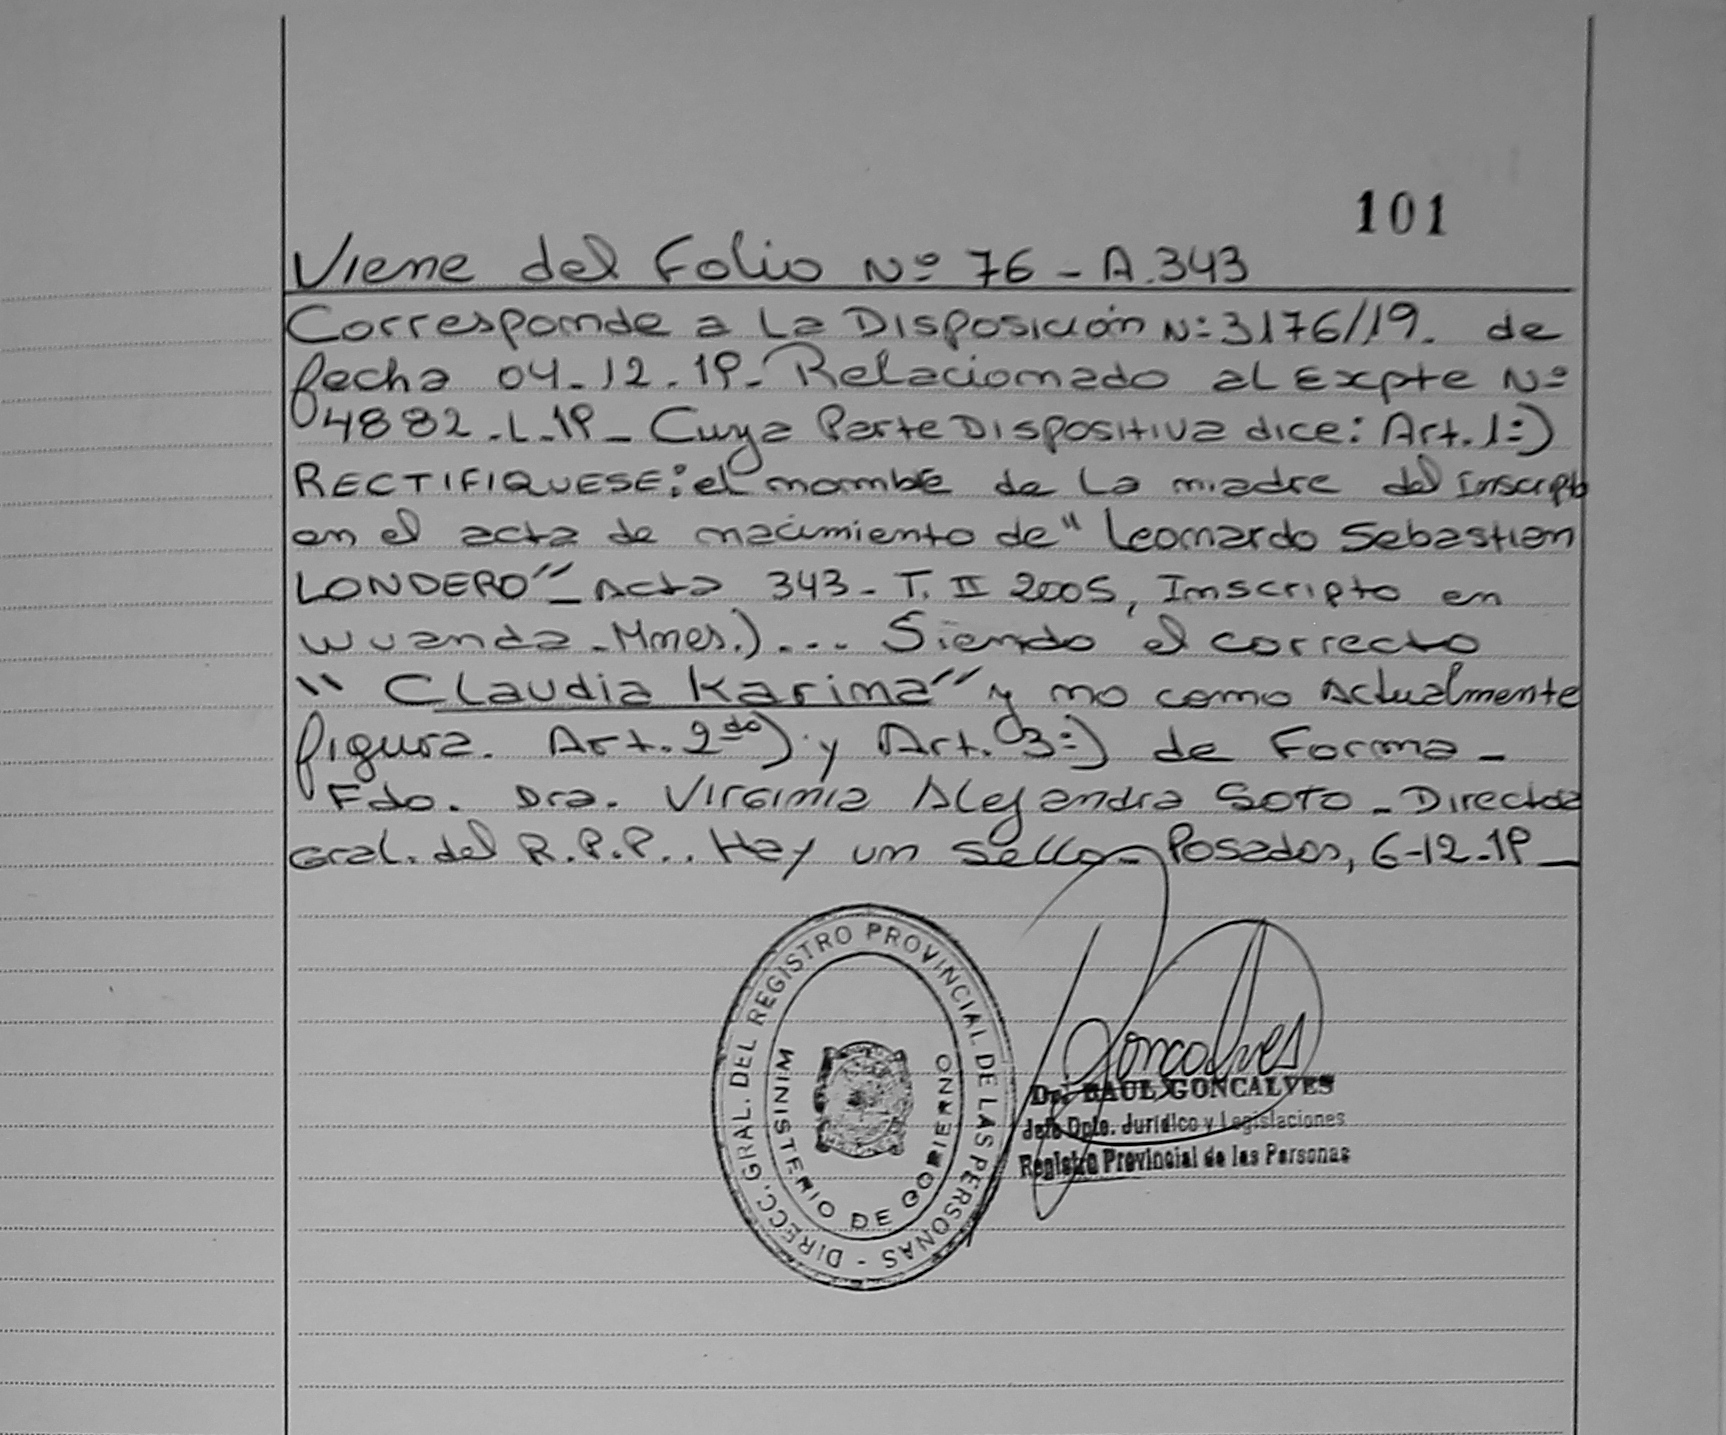 101
Viene del Folio Nº 76 - A.343
Corresponde a La Disposición Nº 3176/19. de
fecha 04-12-19- Relacionado al Expte Nº
4882-L-19- Cuya Parte Dispositiva dice: Art. 1º)
RECTIFIQUESE: el nombre de La madre del Inscripto
en el acta de nacimiento de "Leonardo Sebastian
LONDERO" - Acta 343 - T. II 2005, Inscripto en
Wuanda - Mnes.)... Siendo el correcto
"Claudia Karina" y no como Actualmente
figura. Art. 2do) y Art. 3º) de Forma -
Fdo. Dra. Virginia Alejandra SOTO - Directora
Gral. del R.P.P.. Hay un sello - Posadas, 6-12-19 -
DIRECC. GRAL. DEL REGISTRO PROVINCIAL DE LAS PERSONAS -
MINISTERIO DE GOBIERNO
Goncalves
Dr. RAUL GONCALVES
Jefe Dpto. Jurídico y Legislaciones
Registro Provincial de las Personas